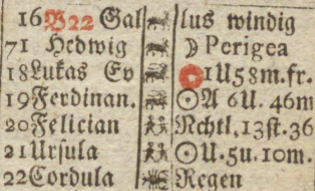 16 B22 Gallus windig
71 Hedwig ☽ Perigea
18 Lukas Ev 1U58m.fr.
19 Ferdinan. ☉A 6U. 46m
20 Felician Nchtl. 13st. 36
21 Ursula ☉U. 5u. 10m.
22 Cordula Regen